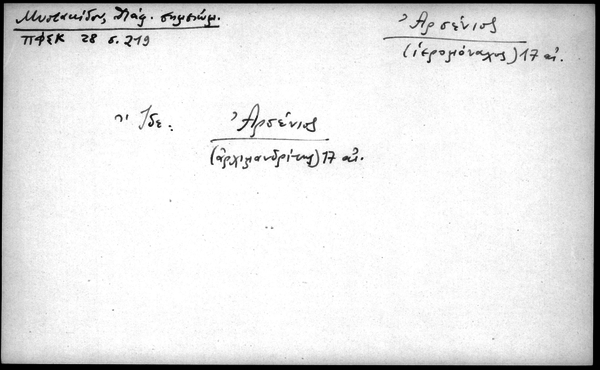 Μυστακίδου Διάφ. σημειώμ.
ΠΦΣΚ 28 σ. 219
Ἀρσένιος
(ἱερομόναχος) 17 αἰ.
Ἴδε: Ἀρσένιος
(ἀρχιμανδρίτης) 17 αἰ.